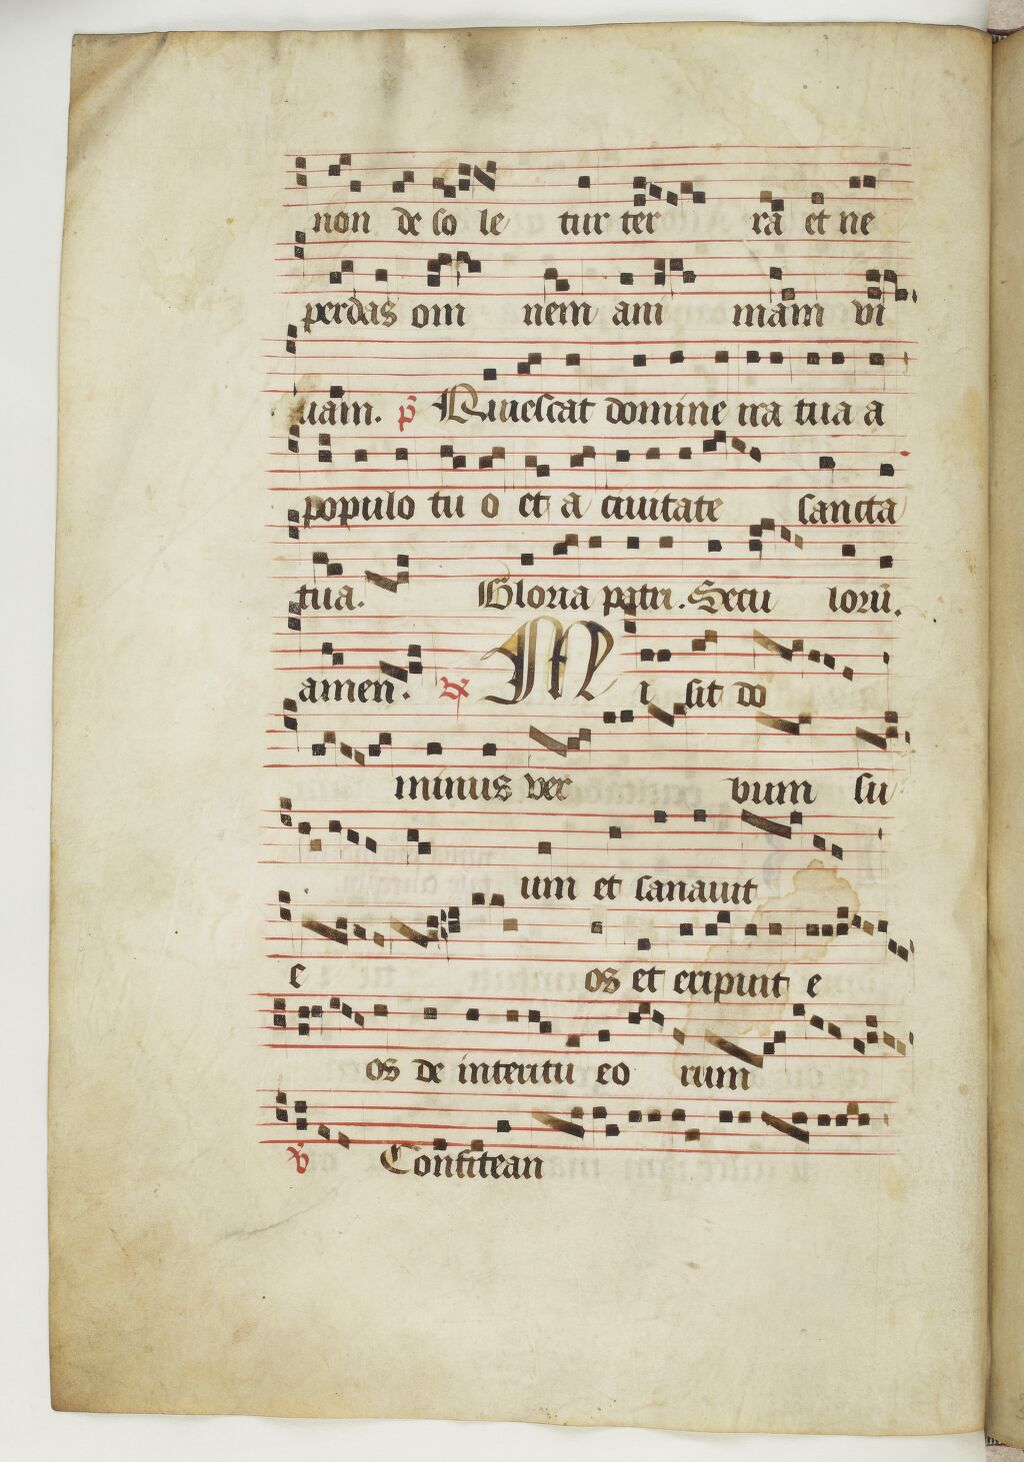 non de so le tur ter ra et ne
perdas om nem ani mam vi
uam. p̄ Quiescat domine ira tua a
populo tu o et a ciuitate sancta
tua. Gloria patri. Secu lorū.
amen. ℟ Mi sit do
minus ver bum su
um et sanauit
e os et eripuit e
os de interitu eo rum
℣ Confitean